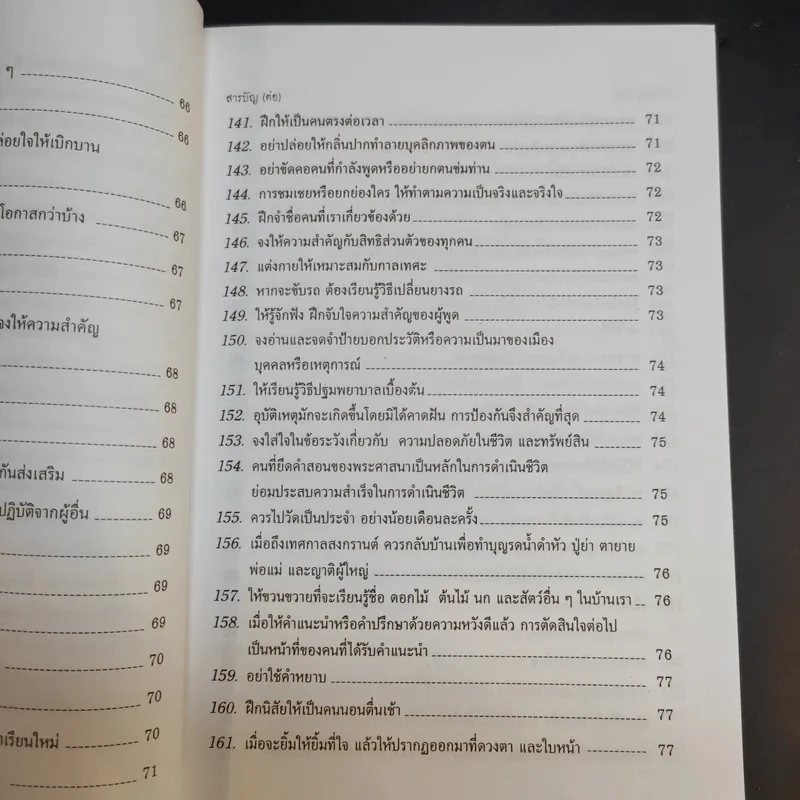 ๆ 66
66
ล่อยใจให้เบิกบาน
66
โอกาสกว่าบ้าง 67
67
67
จงให้ความสำคัญ
68
68
68
กันส่งเสริม 68
ปฏิบัติจากผู้อื่น 69
69
69
69
70
70
าเรียนใหม่ 70
71
สารบัญ (ต่อ)
141. ฝึกให้เป็นคนตรงต่อเวลา 71
142. อย่าปล่อยให้กลิ่นปากทำลายบุคลิกภาพของตน 71
143. อย่าขัดคอคนที่กำลังพูดหรืออย่ายกตนข่มท่าน 72
144. การชมเชยหรือยกย่องใคร ให้ทำตามความเป็นจริงและจริงใจ 72
145. ฝึกจำชื่อคนที่เราเกี่ยวข้องด้วย 72
146. จงให้ความสำคัญกับสิทธิส่วนตัวของทุกคน 73
147. แต่งกายให้เหมาะสมกับกาลเทศะ 73
148. หากจะขับรถ ต้องเรียนรู้วิธีเปลี่ยนยางรถ 73
149. ให้รู้จักฟัง ฝึกจับใจความสำคัญของผู้พูด 73
150. จงอ่านและจดจำป้ายบอกประวัติหรือความเป็นมาของเมือง
บุคคลหรือเหตุการณ์ 74
151. ให้เรียนรู้วิธีปฐมพยาบาลเบื้องต้น 74
152. อุบัติเหตุมักจะเกิดขึ้นโดยมิได้คาดฝัน การป้องกันจึงสำคัญที่สุด 74
153. จงใส่ใจในข้อระวังเกี่ยวกับ ความปลอดภัยในชีวิต และทรัพย์สิน 75
154. คนที่ยึดคำสอนของพระศาสนาเป็นหลักในการดำเนินชีวิต
ย่อมประสบความสำเร็จในการดำเนินชีวิต 75
155. ควรไปวัดเป็นประจำ อย่างน้อยเดือนละครั้ง 75
156. เมื่อถึงเทศกาลสงกรานต์ ควรกลับบ้านเพื่อทำบุญรดน้ำดำหัว ปู่ย่า ตายาย
พ่อแม่ และญาติผู้ใหญ่ 76
157. ให้ขวนขวายที่จะเรียนรู้ชื่อ ดอกไม้ ต้นไม้ นก และสัตว์อื่น ๆ ในบ้านเรา 76
158. เมื่อให้คำแนะนำหรือคำปรึกษาด้วยความหวังดีแล้ว การตัดสินใจต่อไป
เป็นหน้าที่ของคนที่ได้รับคำแนะนำ 76
159. อย่าใช้คำหยาบ 77
160. ฝึกนิสัยให้เป็นคนนอนตื่นเช้า 77
161. เมื่อจะยิ้มให้ยิ้มที่ใจ แล้วให้ปรากฏออกมาที่ดวงตา และใบหน้า 77